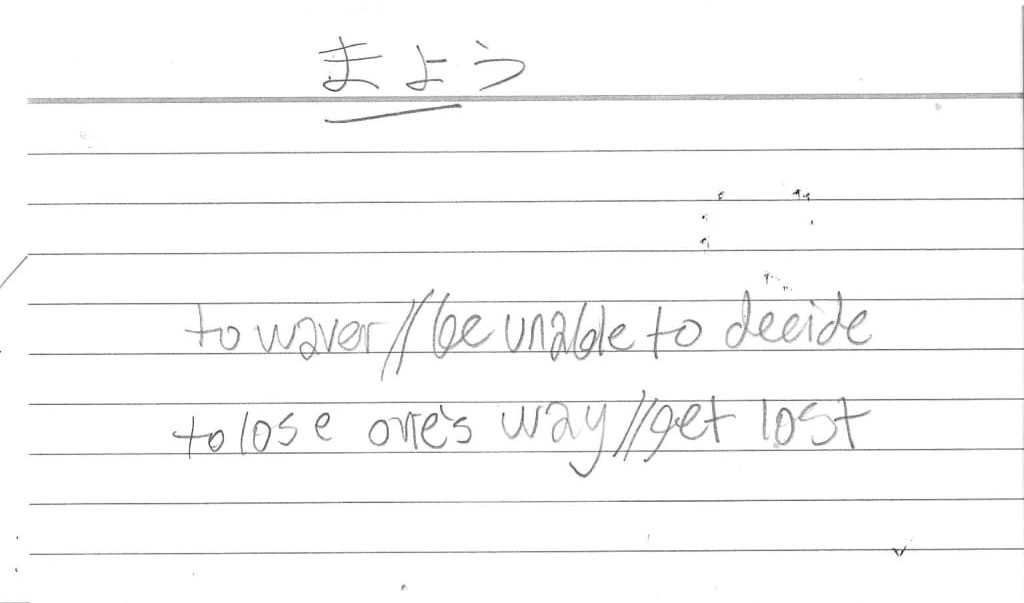 まよう
to waver//be unable to decide
to lose one's way//get lost